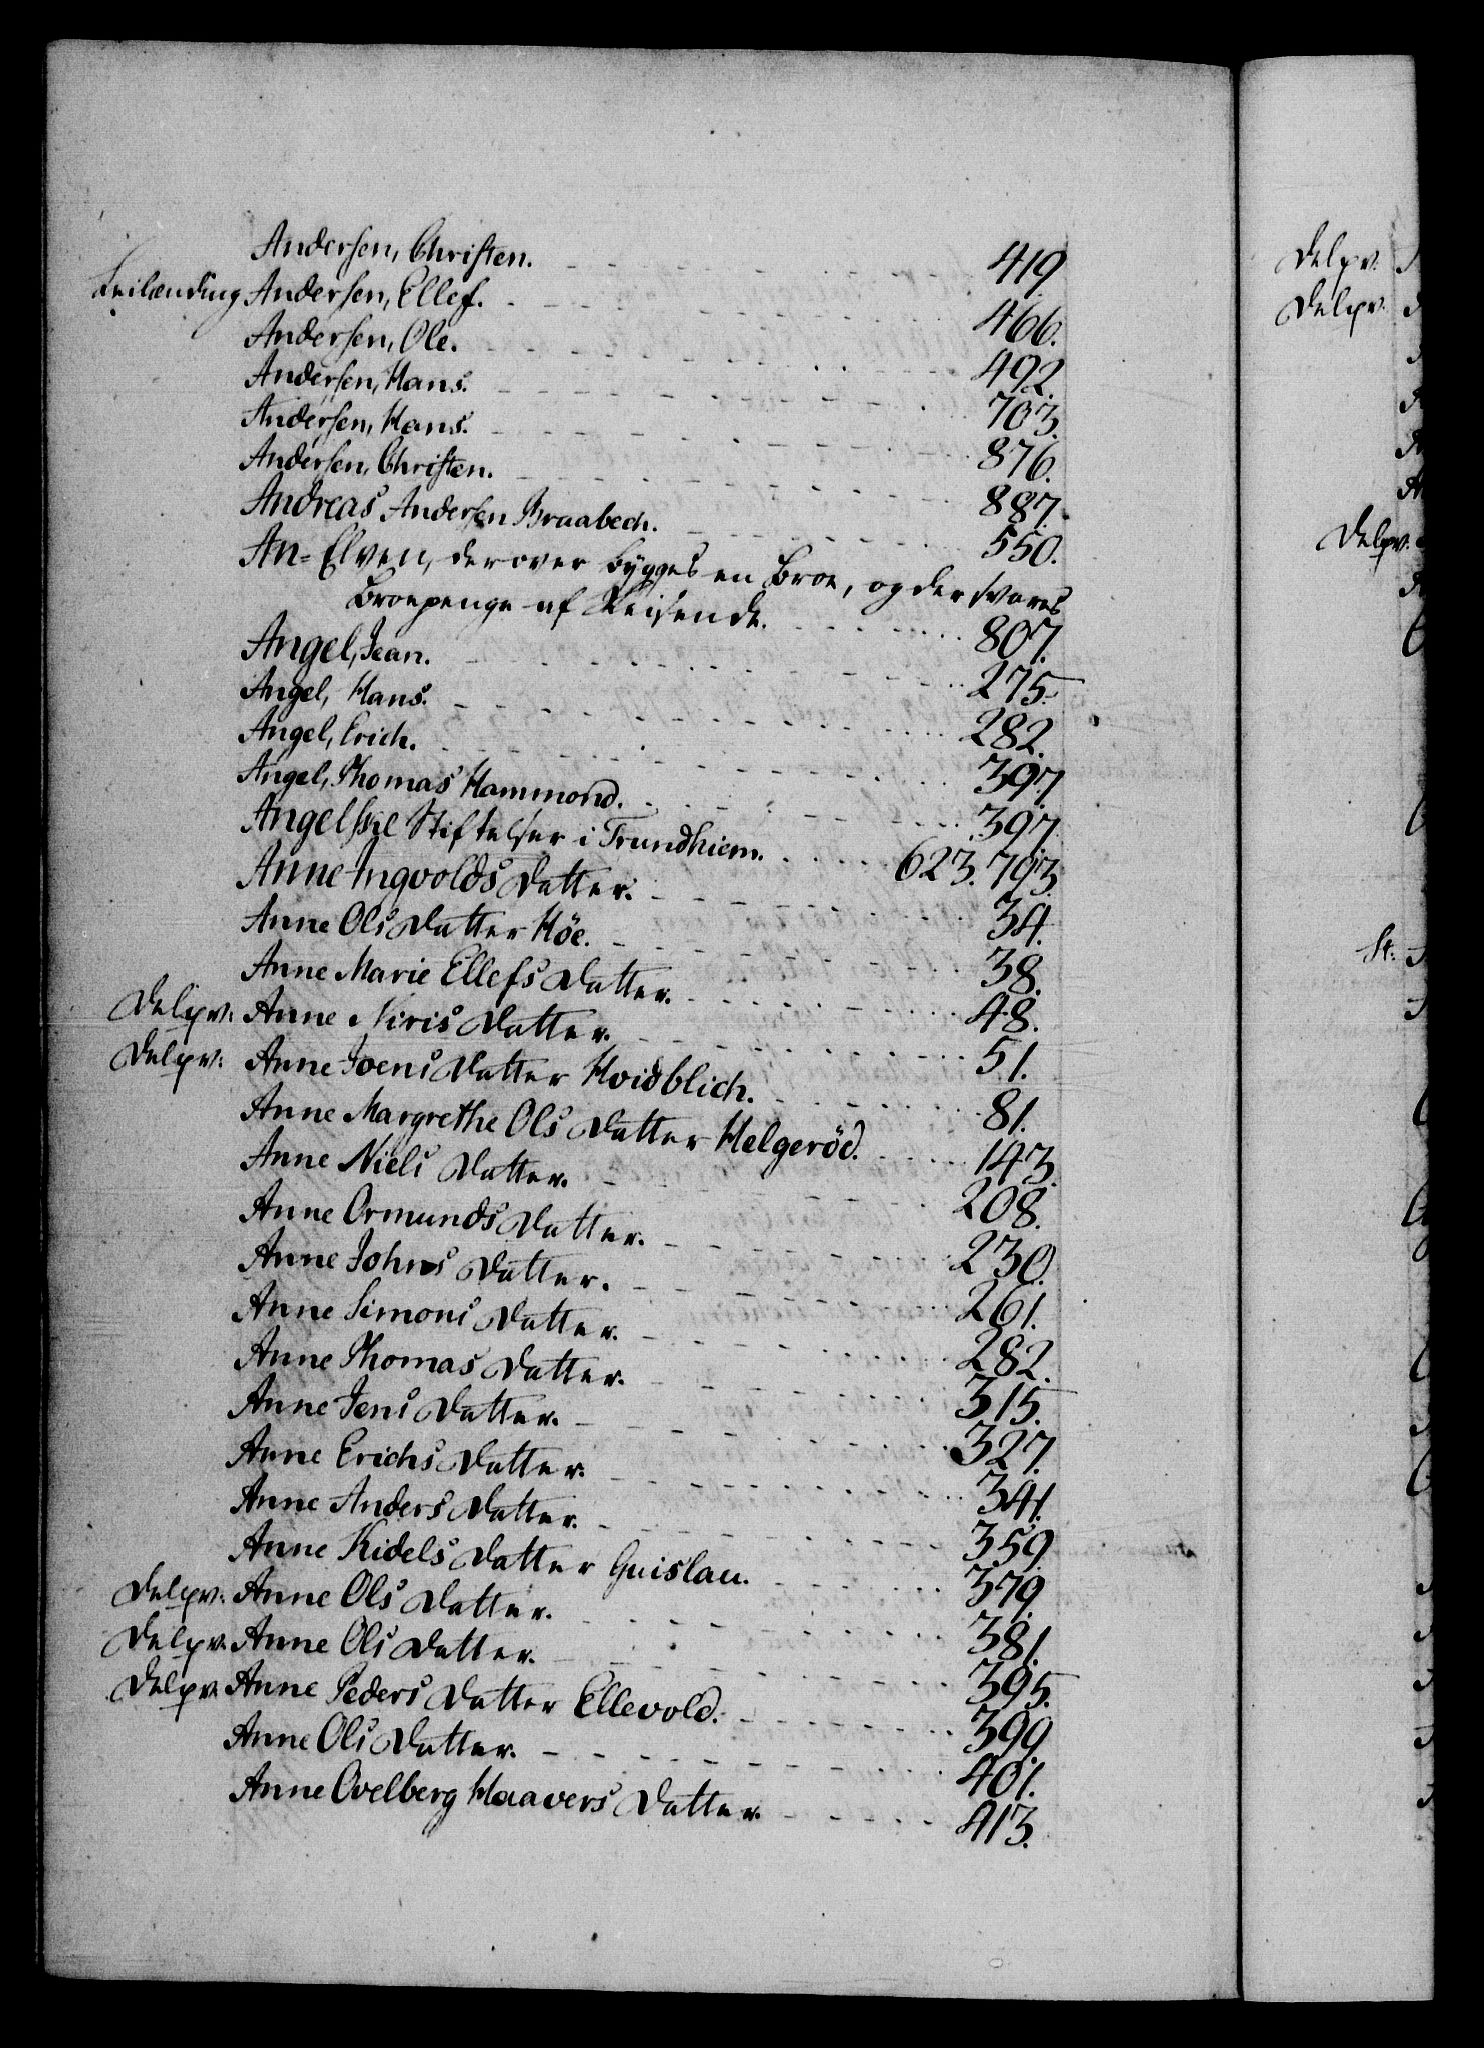 Andersen, Christen. 419
Leilænding Andersen, Ellef. 466.
Andersen, Ole. 492.
Andersen, Hans. 703.
Andersen, Hans. 876.
Andersen, Christen. 887.
Andreas Andersen Braabech. 550.
An-Elven, derover bygges en Broe, og der svares
Broepenge af Reisende. 807.
Angel, Jean. 275.
Angel, Hans. 282.
Angel, Erich. 397.
Angel, Thomas Hammond. 397.
Angelske Stiftelser i Trundhiem. 623. 793.
Anne Ingvolds Datter. 34.
Anne Ols Datter Höe. 38.
Anne Marie Ellefs Datter. 48.
Delpv: Anne Niris Datter. 51.
Delpv: Anne Joens Datter Hvidblich. 81.
Anne Margrethe Ols Datter Helgeröd. 143.
Anne Niels Datter. 208.
Anne Ormunds Datter. 230.
Anne Johns Datter. 261.
Anne Simons Datter. 282.
Anne Thomas Datter. 315.
Anne Jens Datter. 327.
Anne Erichs Datter. 341.
Anne Anders Datter. 359.
Anne Kidels Datter Guislau. 379.
Delpv: Anne Ols Datter. 381.
Delpv. Anne Ols Datter. 395.
Delpv. Anne Peders Datter Ellevold. 399.
Anne Ols Datter. 401.
Anne Ovelberg Haavers Datter. 413.
Delpv:
Delpv.
Delpv.
St: